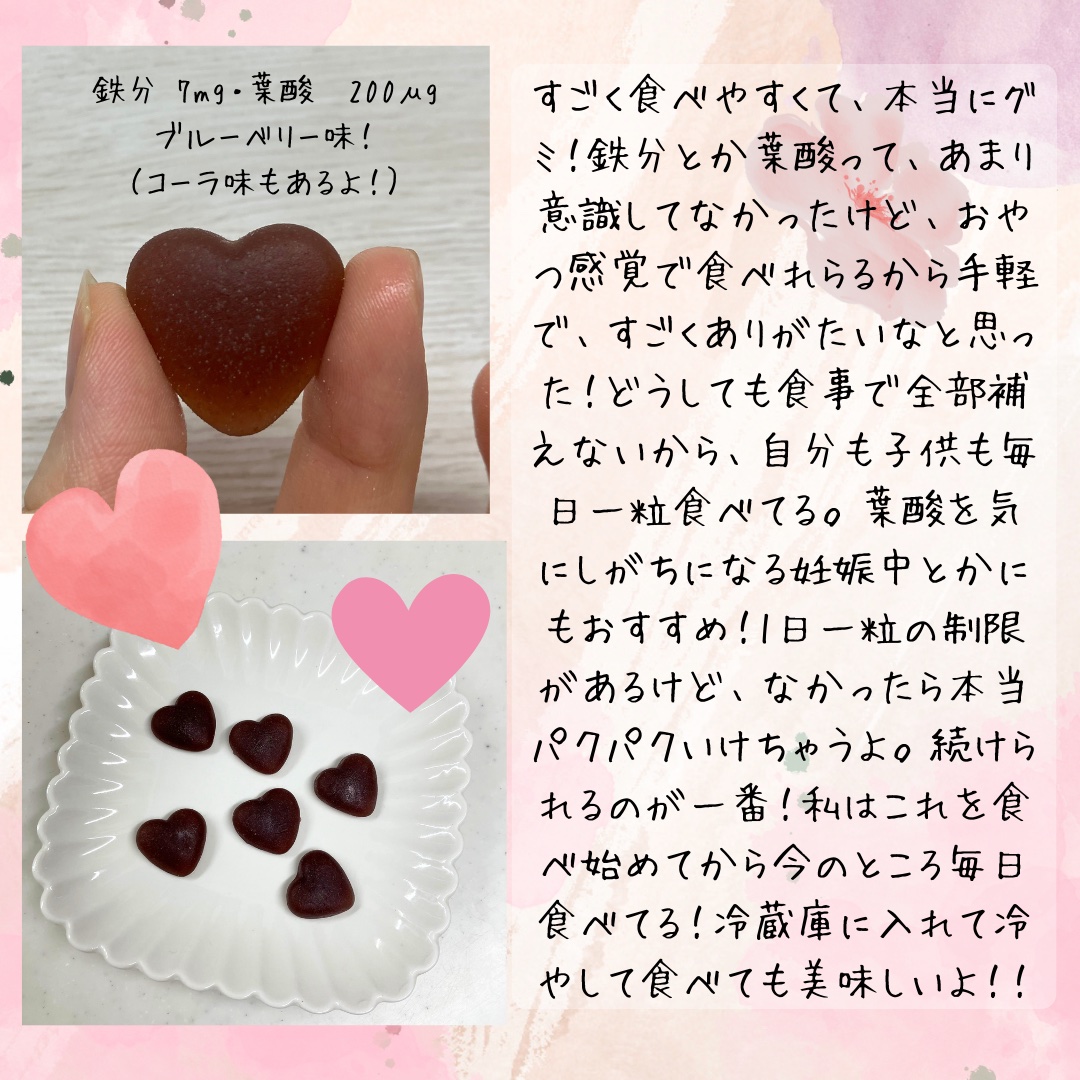 鉄分 7mg・葉酸 200μg
ブルーベリー味！
（コーラ味もあるよ！）
すごく食べやすくて、本当にグ
ミ！鉄分とか葉酸って、あまり
意識してなかったけど、おや
つ感覚で食べれらるから手軽
で、すごくありがたいなと思っ
た！どうしても食事で全部補
えないから、自分も子供も毎
日一粒食べてる。葉酸を気
にしがちになる妊娠中とかに
もおすすめ！1日一粒の制限
があるけど、なかったら本当
パクパクいけちゃうよ。続けら
れるのが一番！私はこれを食
べ始めてから今のところ毎日
食べてる！冷蔵庫に入れて冷
やして食べても美味しいよ！！